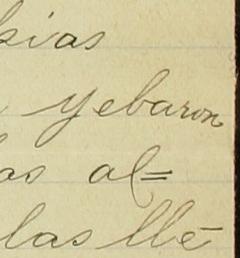 sias
yebaron
as al=
las llē